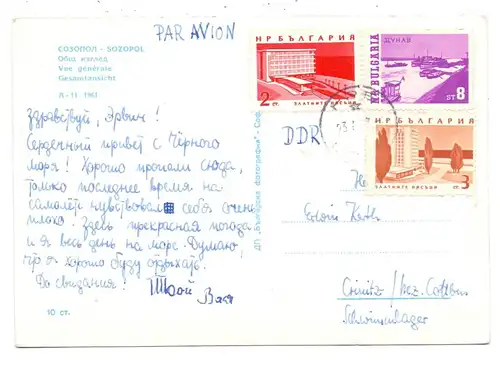 PAR AVION
СОЗОПОЛ - SOZOPOL
Общ изглед
Vue générale
Gesamtansicht
Я - 11 1961
Здравствуй, Эрвин!
Сердечный привет с Чёрного
моря! Хорошо попали сюда,
только последнее время на
самолёте чувствовал себя очень
плохо. Здесь прекрасная погода
и я весь день на море. Думаю,
что я хорошо буду отдыхать.
До свидания! Твой Вася
10 ст.
ДП „Българска фотография" - Соф.
НР БЪЛГАРИЯ
2 СТ.
ЗЛАТНИТЕ ПЯСЪЦИ
ДУНАВ
NR BULGARIA
СТ 8
НР БЪЛГАРИЯ
ЗЛАТНИТЕ ПЯСЪЦИ
СТ. 3
23.
DDR
Erwin
Crinitz / bez. Cottbus